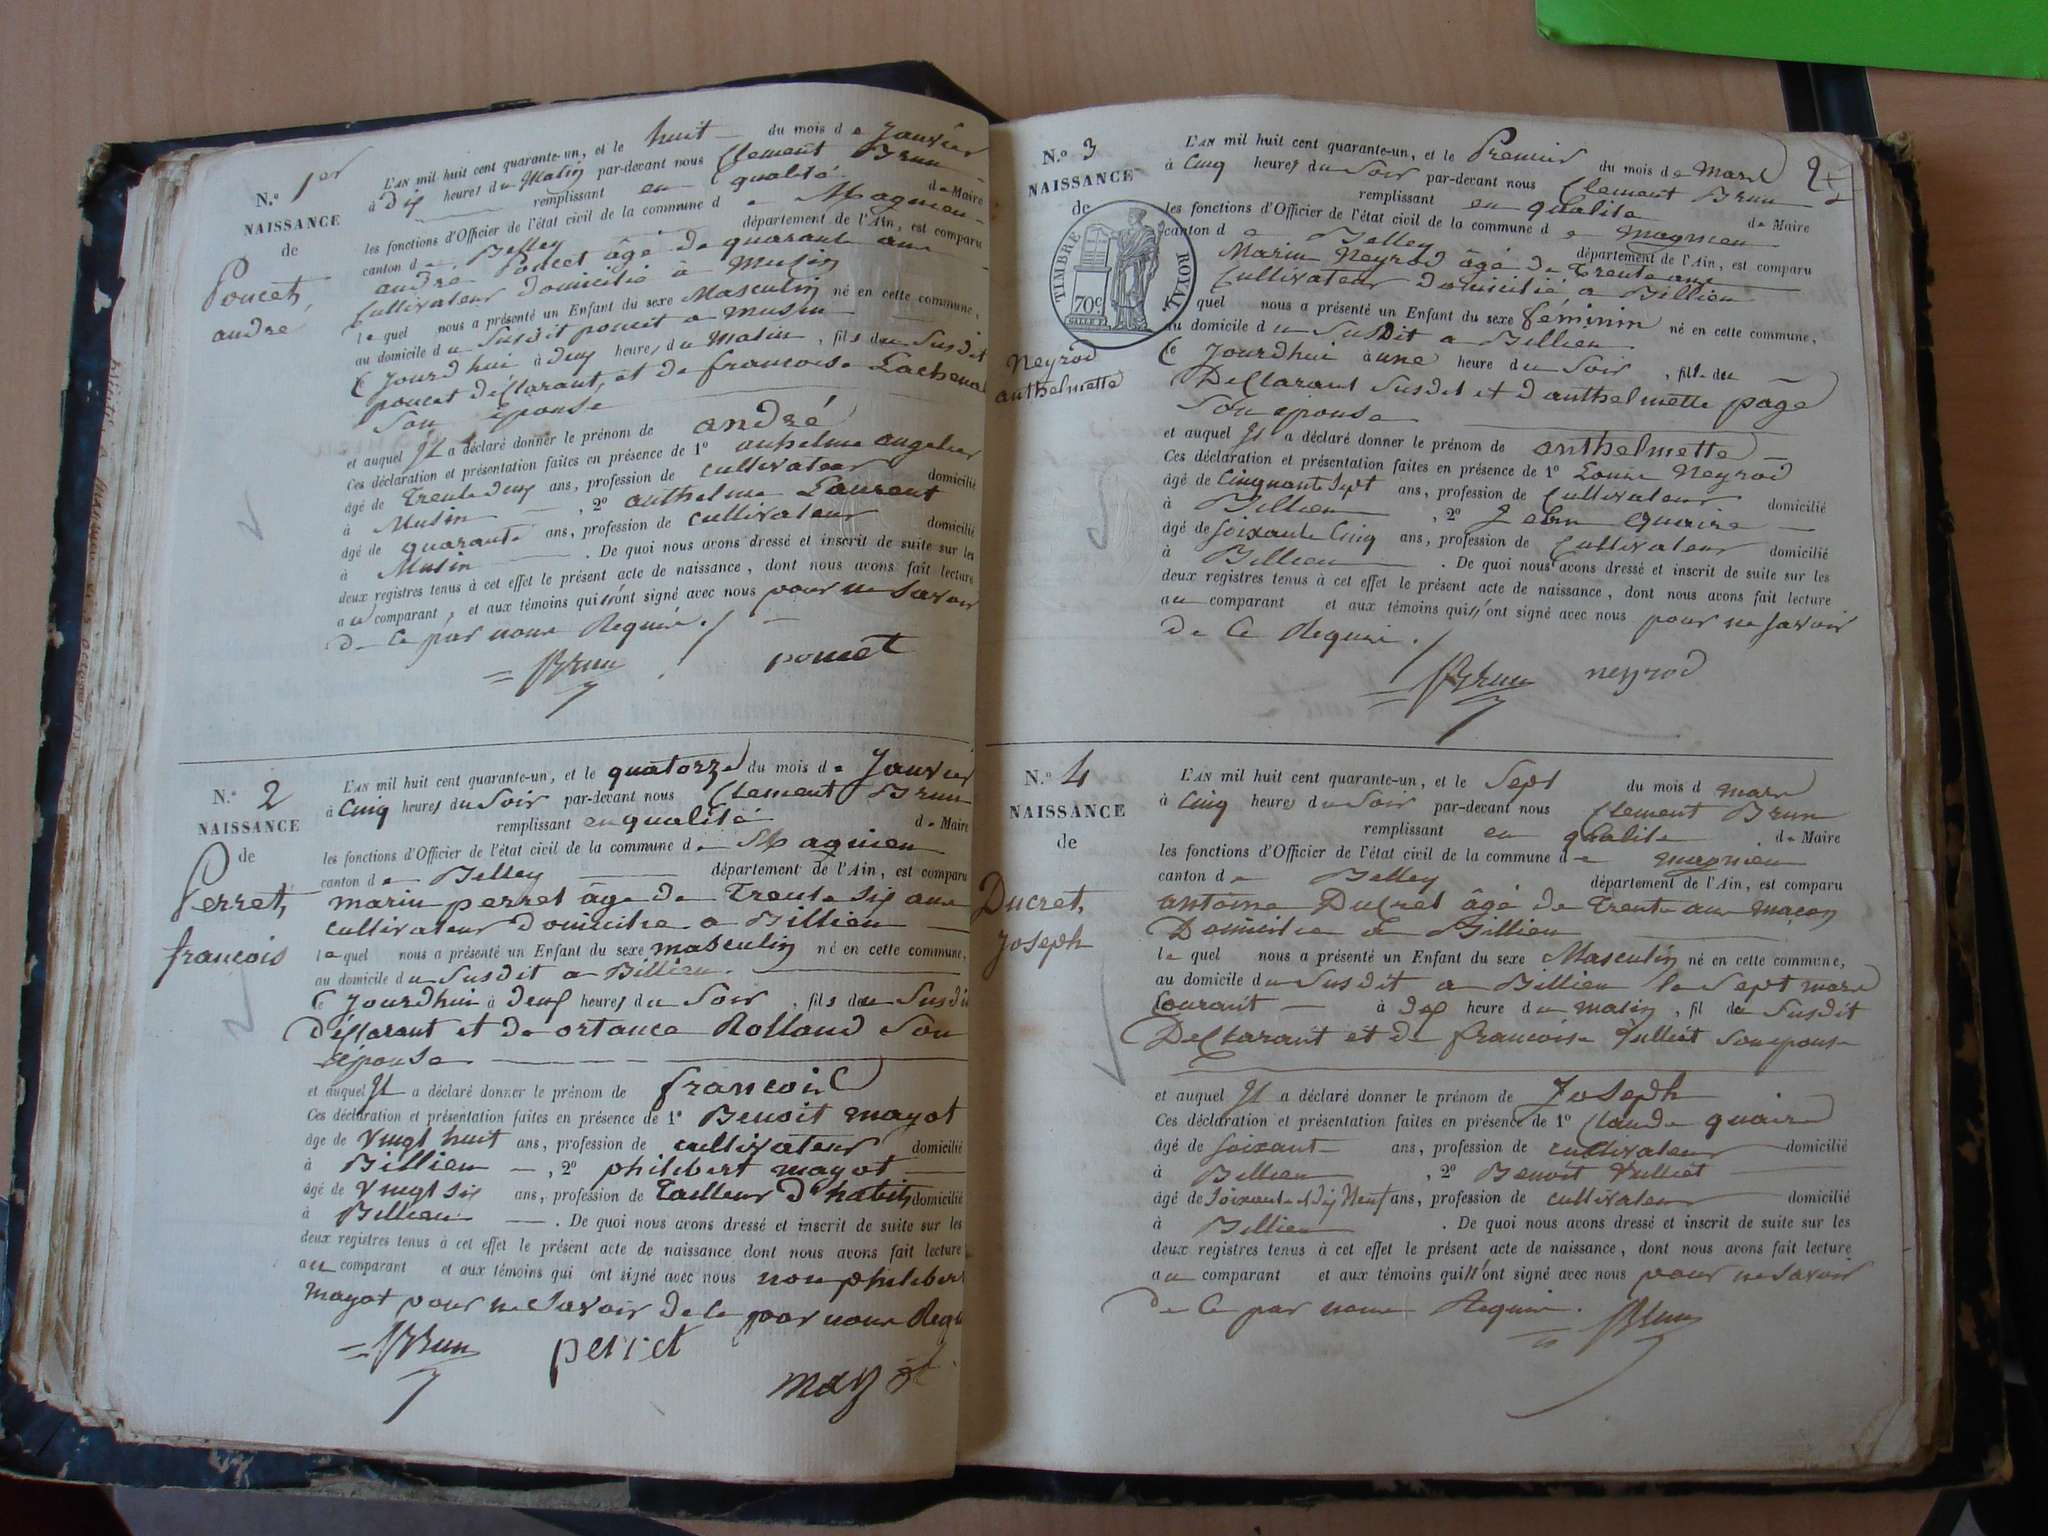 N.º 1er
NAISSANCE
de
Poncet,
andré
L'AN mil huit cent quarante-un, et le huit du mois de Janvier
à Dix heures du Matin par-devant nous Clement Brun
remplissant en qualité de Maire
les fonctions d'Officier de l'état civil de la commune de Magnieu
canton de Belley département de l'Ain, est comparu
andré Poncet âgé de quarante ans
Cultivateur domicilié à Musin
lequel nous a présenté un Enfant du sexe Masculin né en cette commune,
au domicile du Susdit poncet a musin
Ce Jourdhui à deux heures du Matin, fils du Susdit
poncet déclarant, et de francoise Lachena
Son épouse
et auquel Il a déclaré donner le prénom de andré
Ces déclaration et présentation faites en présence de 1º anthelme angelier
âgé de Trente deux ans, profession de cultivateur domicilié
à Musin, 2º anthelme Laurent
âgé de quarante ans, profession de cultivateur domicilié
à Musin. De quoi nous avons dressé et inscrit de suite sur les
deux registres tenus à cet effet le présent acte de naissance, dont nous avons fait lecture
au comparant, et aux témoins qui n'ont signé avec nous pour ne Savoir
de Ce par nous Requis.
Brun poncet
N.º 2
NAISSANCE
de
Perret,
francois
L'AN mil huit cent quarante-un, et le quatorze du mois de Janvier
à Cinq heures du Soir par-devant nous Clement Brun
remplissant en qualité de Maire
les fonctions d'Officier de l'état civil de la commune de Magnieu
canton de Belley département de l'Ain, est comparu
marin perret âge de Trente six ans
cultivateur domicilie a Billieu
lequel nous a présenté un Enfant du sexe masculin né en cette commune,
au domicile du Susdit a Billieu.
Ce Jourdhui à deux heures du Soir, fils du Susdit
déclarant et de ortance Rolland Son
épouse
et auquel Il a déclaré donner le prénom de francois
Ces déclaration et présentation faites en présence de 1º Benoit mayot
âge de Vingt huit ans, profession de cultivateur domicilié
à Billieu, 2º philibert mayot
âgé de Vingt six ans, profession de Tailleur d'habits domicilié
à Billieu. De quoi nous avons dressé et inscrit de suite sur les
deux registres tenus à cet effet le présent acte de naissance dont nous avons fait lecture
au comparant et aux témoins qui ont signé avec nous non philibert
mayot pour ne Savoir de Ce par nous Requi
Brun perret
mayot
2
N.º 3
NAISSANCE
de
TIMBRE ROYAL
70c
Neyrod
anthelmette
L'AN mil huit cent quarante-un, et le Premier du mois de Mars
à Cinq heures du Soir par-devant nous Clement Brun
remplissant en qualité de Maire
les fonctions d'Officier de l'état civil de la commune de magnieu
canton de Belley département de l'Ain, est comparu
Marin Neyrod âgé de Trente ans
Cultivateur domicilié a Billieu
quel nous a présenté un Enfant du sexe féminin né en cette commune,
au domicile du Susdit a Billieu
Ce Jourdhui à une heure du Soir, fille du
Déclarant Susdit et d'anthelmette page
Son épouse
et auquel Il a déclaré donner le prénom de anthelmette
Ces déclaration et présentation faites en présence de 1º Louis Neyrod
âgé de Cinquante Sept ans, profession de Cultivateur domicilié
à Billieu, 2º Jean Quaire
âgé de Soixante Cinq ans, profession de Cultivateur domicilié
à Billieu. De quoi nous avons dressé et inscrit de suite sur les
deux registres tenus à cet effet le présent acte de naissance, dont nous avons fait lecture
au comparant et aux témoins qui n'ont signé avec nous pour ne Savoir
de Ce Requis.
Brun neyrod
N.º 4
NAISSANCE
de
Ducret,
Joseph
L'AN mil huit cent quarante-un, et le Sept du mois d mars
à Cinq heures du Soir par-devant nous Clement Brun
remplissant en qualité de Maire
les fonctions d'Officier de l'état civil de la commune de magnieu
canton de Belley département de l'Ain, est comparu
antoine Ducret âgé de Trente ans maçon
Domicilie a Billieu
lequel nous a présenté un Enfant du sexe Masculin né en cette commune,
au domicile du Susdit a Billieu le Sept mars
Courant à dix heure du matin, fil du Susdit
Déclarant et de francoise Vulliet Son épouse
et auquel Il a déclaré donner le prénom de Joseph
Ces déclaration et présentation faites en présence de 1º Claude quaire
âgé de Soixant ans, profession de cultivateur domicilié
à Billieu, 2º Benoit Vulliet
âgé de Soixante et dix Neuf ans, profession de cultivateur domicilié
à Billieu. De quoi nous avons dressé et inscrit de suite sur les
deux registres tenus à cet effet le présent acte de naissance, dont nous avons fait lecture
au comparant et aux témoins qui n'ont signé avec nous pour ne Savoir
de Ce par nous Requis.
Brun